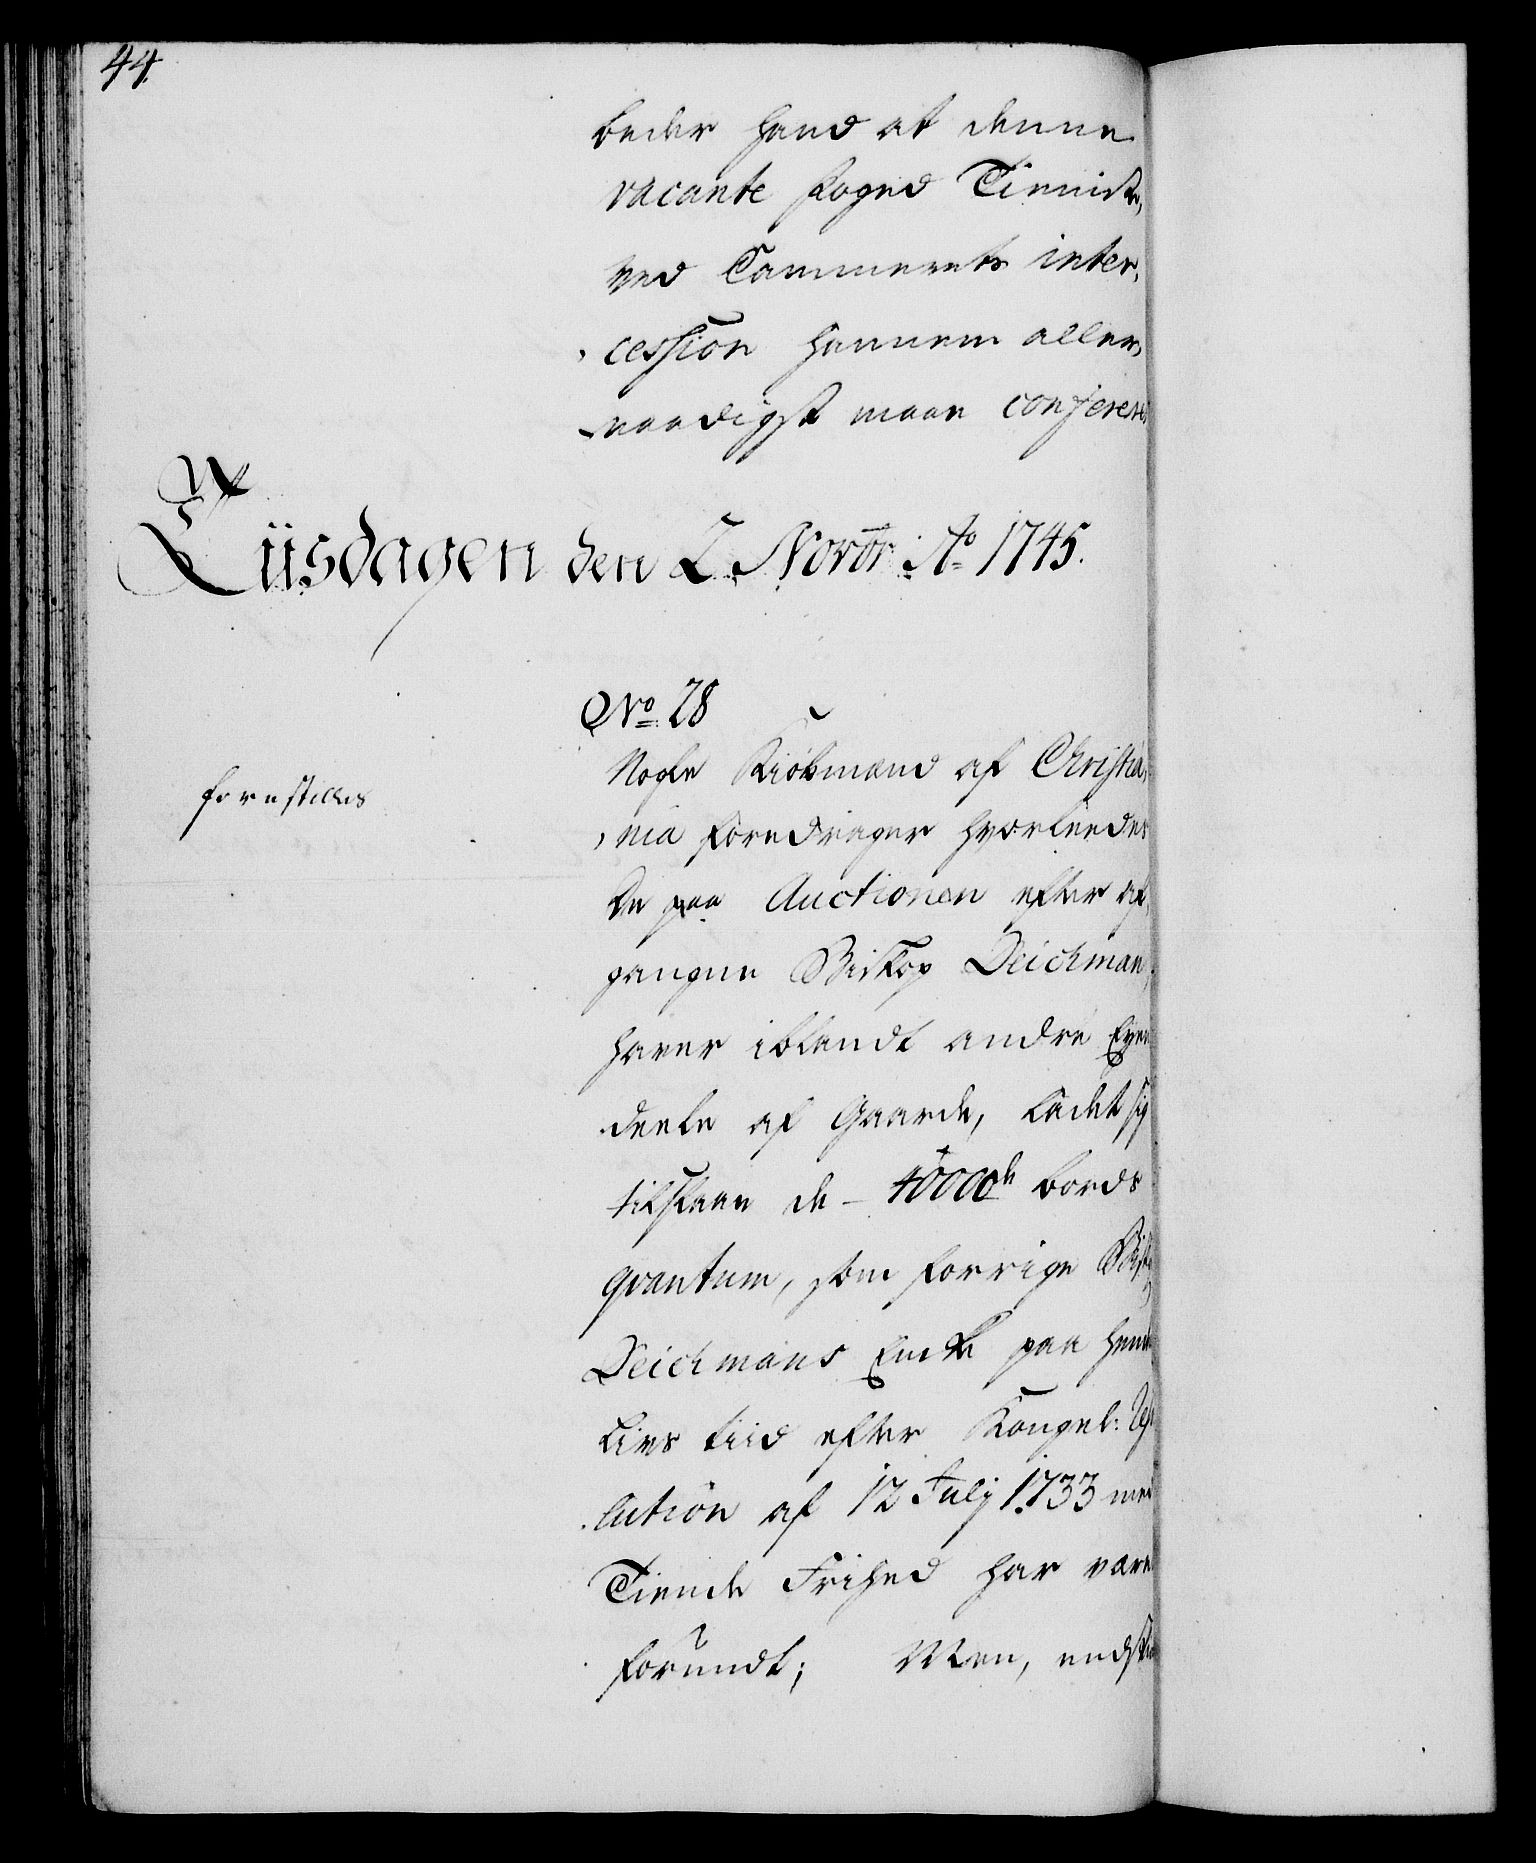 44.
beder hand at denne
vacante foged Tienniste,
ved Cammerets inter,
,cession hannem aller,
,naadigst maae conferere,
Tüsdagen den 2. Novbr: Ao 1745.
No 28
forestilles
Nogle Kiøbmænd af Christia,
,nia foredrager hvorleedes
De paa Auctionen efter af,
gangne Biskop Deichman,
haver iblandt andre Eyen
deele af Gaarde, ladet sig
tilslaae de - 40000de bords
qvantum, som forrige Bisk
Deichmans Encke paa hendes
Livs tiid efter Kongel: Reso
lution af 12 July 1733 med
Tiende Frihed har været
forundt; Men, endskiø